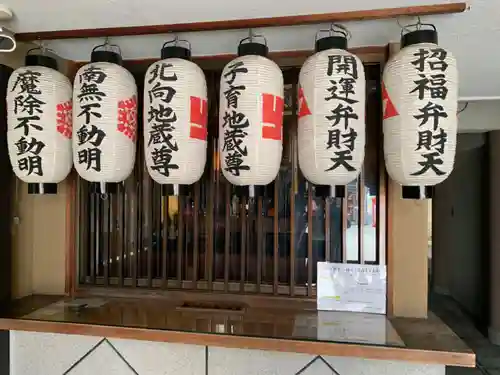 魔除不動
南無不動明
北向地蔵尊
子育地蔵尊
開運弁財天
招福弁財天